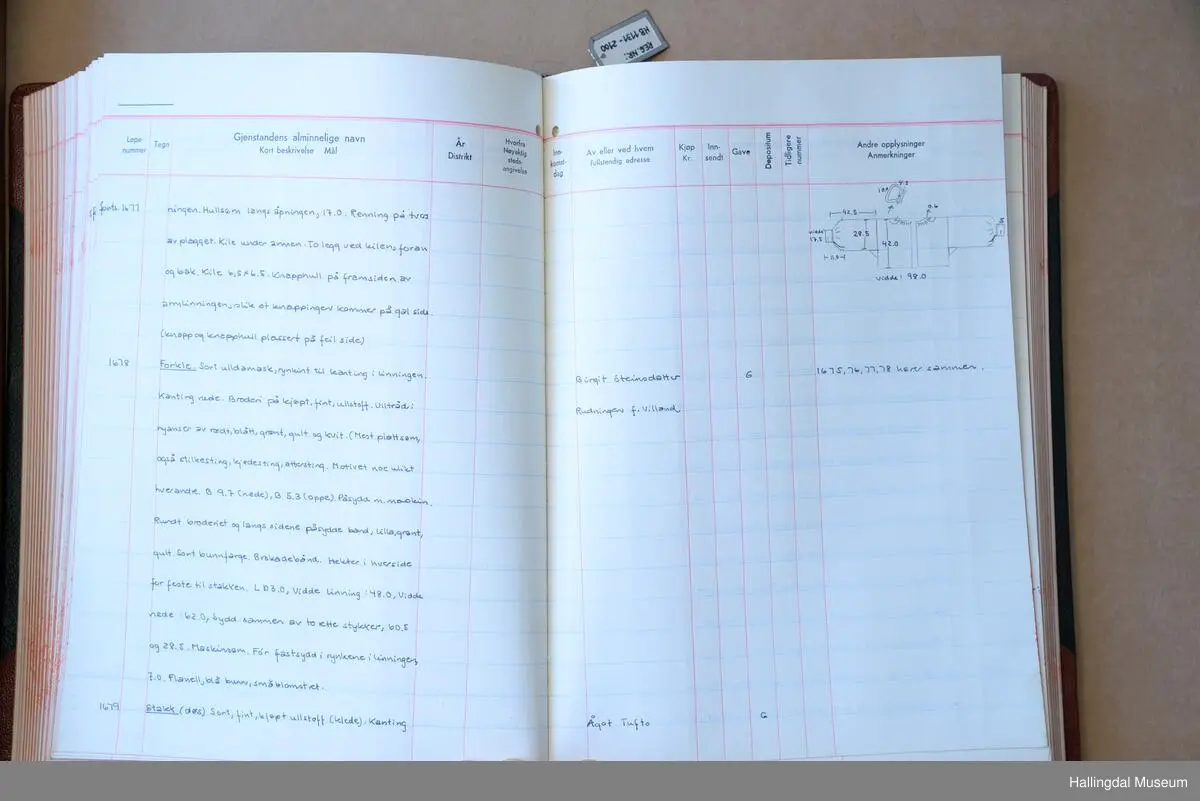 REG.NR: HB 1131-2100
Løpenummer
Tegn
Gjenstandens alminnelige navn
Kort beskrivelse Mål
År
Distrikt
Hvorfra
Nøyaktig
stedsangivelse
Innkomstdag
Av eller ved hvem
Fullstendig adresse
Kjøp
Kr.
Innsendt
Gave
Depositum
Tidligere nummer
Andre opplysninger
Anmerkninger
forts. 1677 ningen. Hullsøm langs åpningen, 17.0. Renning på tvers
av plagget. Kile under armen. To legg ved kilens foran
og bak. Kile 6,5 x 6.5. Knapphull på framsiden av
armlinningen, slik at knappingen kommer på gal side.
(knapp og knapphull plassert på feil side)
42.5
28.5
42.0
vidde
17.5
0.6
vidde: 98.0
1678 Forkle. Sort ulldamask, rynkint til kanting i linningen.
Birgit Steinsdatter G 1675, 76, 77, 78 hører sammen.
Kanting nede. Broderi på kjøpt, fint, ullstoff. Ulltråd i
Rudningen f. Villand
nyanser av rødt, blått, grønt, gult og kvit. (Mest plattsøm,
også stilkesting, kjedesting, attersting. Motivet noe ulikt
hverandre. B 9.7 (nede), B 5.3 (oppe). Påsydd m. maskin.
Rundt broderiet og langs sidene påsydde bånd, lilla, grønt,
gult. Sort bunnfarge. Brokadebånd. Hekter i hver side
for feste til stakken. L 83.0, Vidde linning: 48.0, Vidde
nede: 62.0, Sydd sammen av to rette stykker, 60.5
og 28.5. Maskinsøm. Fôr fastsydd i rynkene i linningen,
7.0. Flanell, blå bunn, småblomstret.
1679 Stakk (døs) Sort, fint, kjøpt ullstoff (klede). Kanting
Ågot Tufto G
Hallingdal Museum